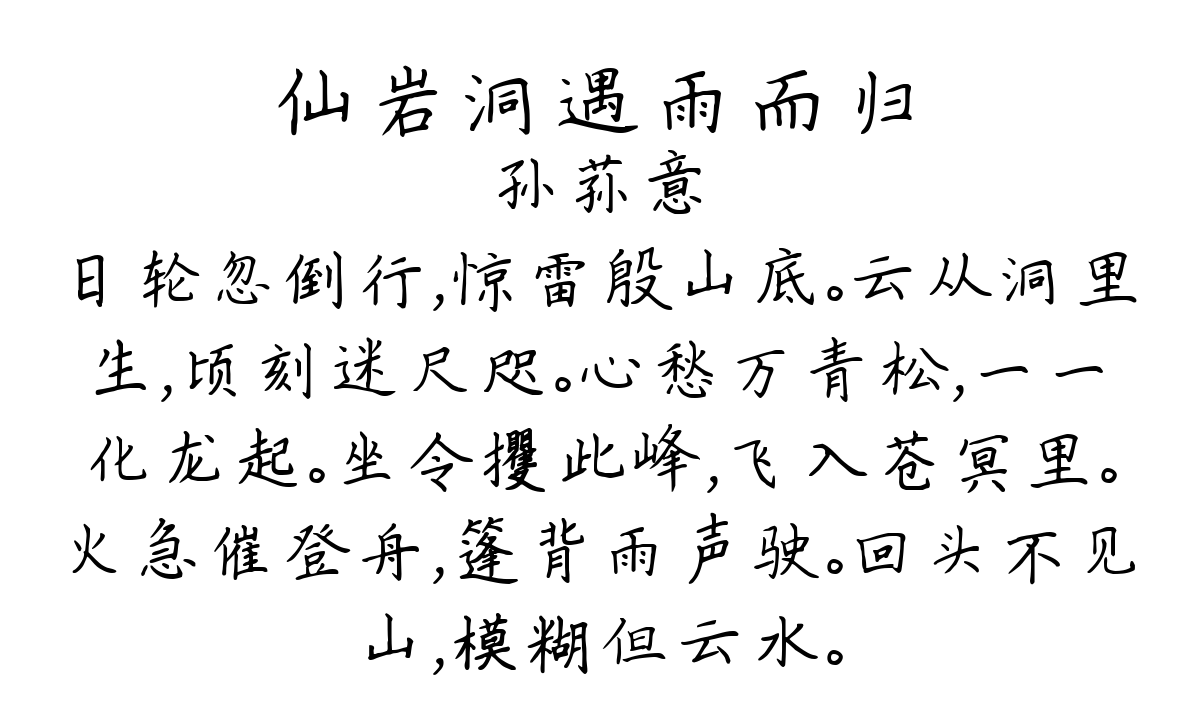 仙岩洞遇雨而归
孙荪意
日轮忽倒行,惊雷殷山底。云从洞里
生,顷刻迷尺咫。心愁万青松,一一
化龙起。坐令攫此峰,飞入苍冥里。
火急催登舟,篷背雨声驶。回头不见
山,模糊但云水。